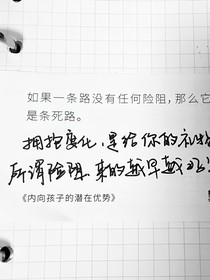 如果一条路没有任何险阻，那么它
是条死路。
拥抱变化，是给你的礼物
所谓险阻 来的越早越
《内向孩子的潜在优势》